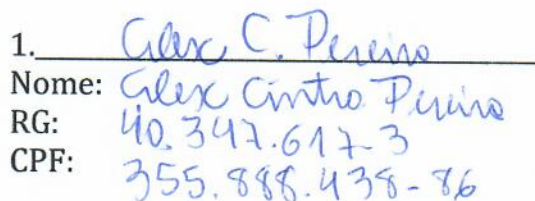 1. Alex C. Pereira
Nome: Alex Cintra Pereira
RG: 40.347.617-3
CPF: 355.888.438-86